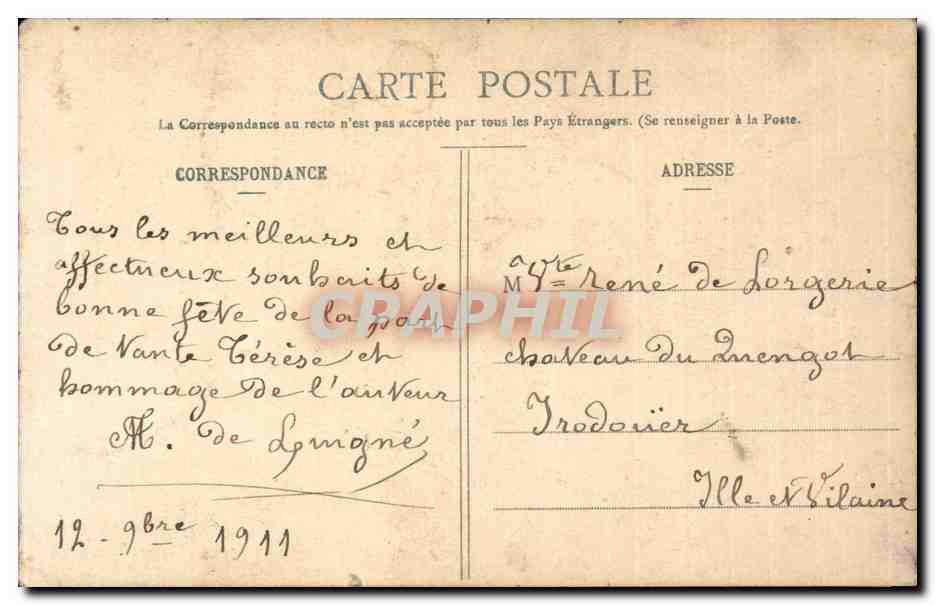 CARTE POSTALE
La Correspondance au recto n'est pas acceptée par tous les Pays Étrangers. (Se renseigner à la Poste.
CORRESPONDANCE
Tous les meilleurs et
affectueux souhaits de
bonne fête de la part
de tante Térèse et
hommage de l'auteur
de Luigné
12 - 9bre 1911
ADRESSE
Vte René de Lorgerie
chateau du Quengo
Irodouër
Ille et Vilaine
CPAPHIL